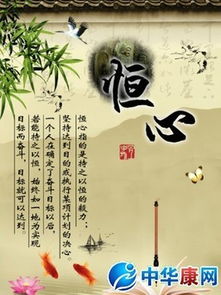 恒心
恒心指的是持之以恒的毅力；
坚持达到目的或执行某项计划的决心。
一个人在确定了奋斗目标以后，
若能持之以恒，始终如一地为实现
目标而奋斗，目标就可以达到。
中华康网